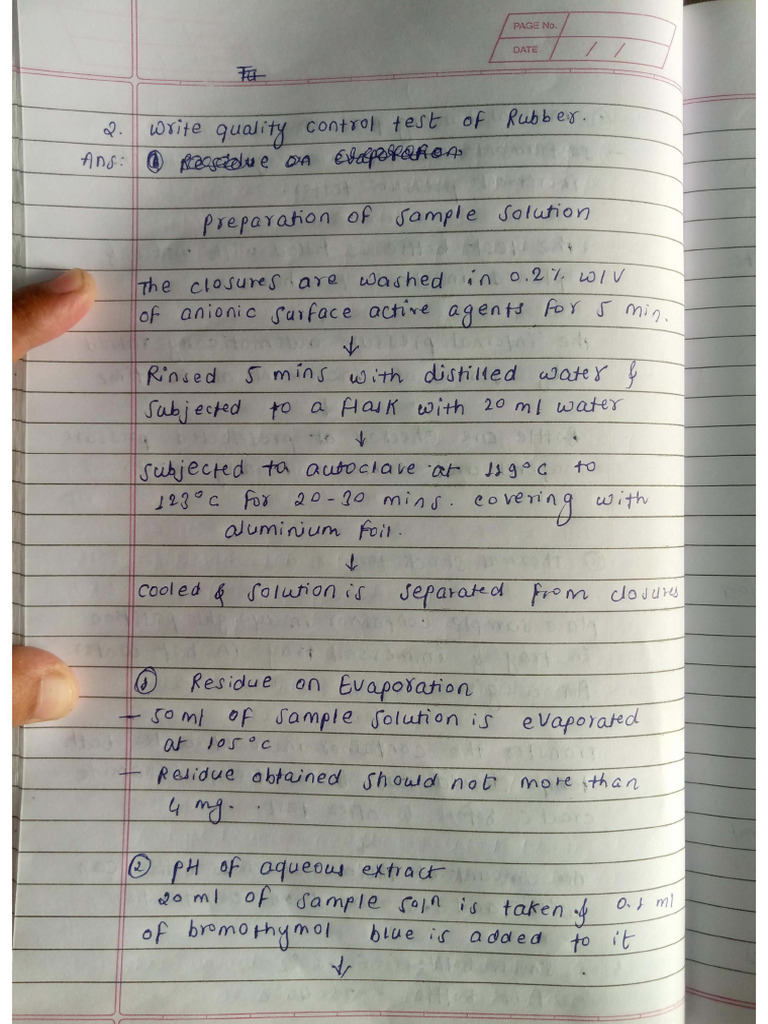 PAGE No.
DATE / /
2. Write quality control test of Rubber.
Ans: ① Residue on Evaporation
Preparation of sample solution
The closures are washed in 0.2% w/v
of anionic surface active agents for 5 min.
↓
Rinsed 5 mins with distilled water &
subjected to a flask with 20 ml water
↓
subjected to autoclave at 119°C to
123°C for 20-30 mins. covering with
aluminium foil.
↓
cooled & solution is separated from closures
① Residue on Evaporation
- 50 ml of sample solution is evaporated
at 105°C
- Residue obtained should not more than
4 mg.
② pH of aqueous extract
20 ml of sample soln is taken & 0.1 ml
of bromothymol blue is added to it
↓